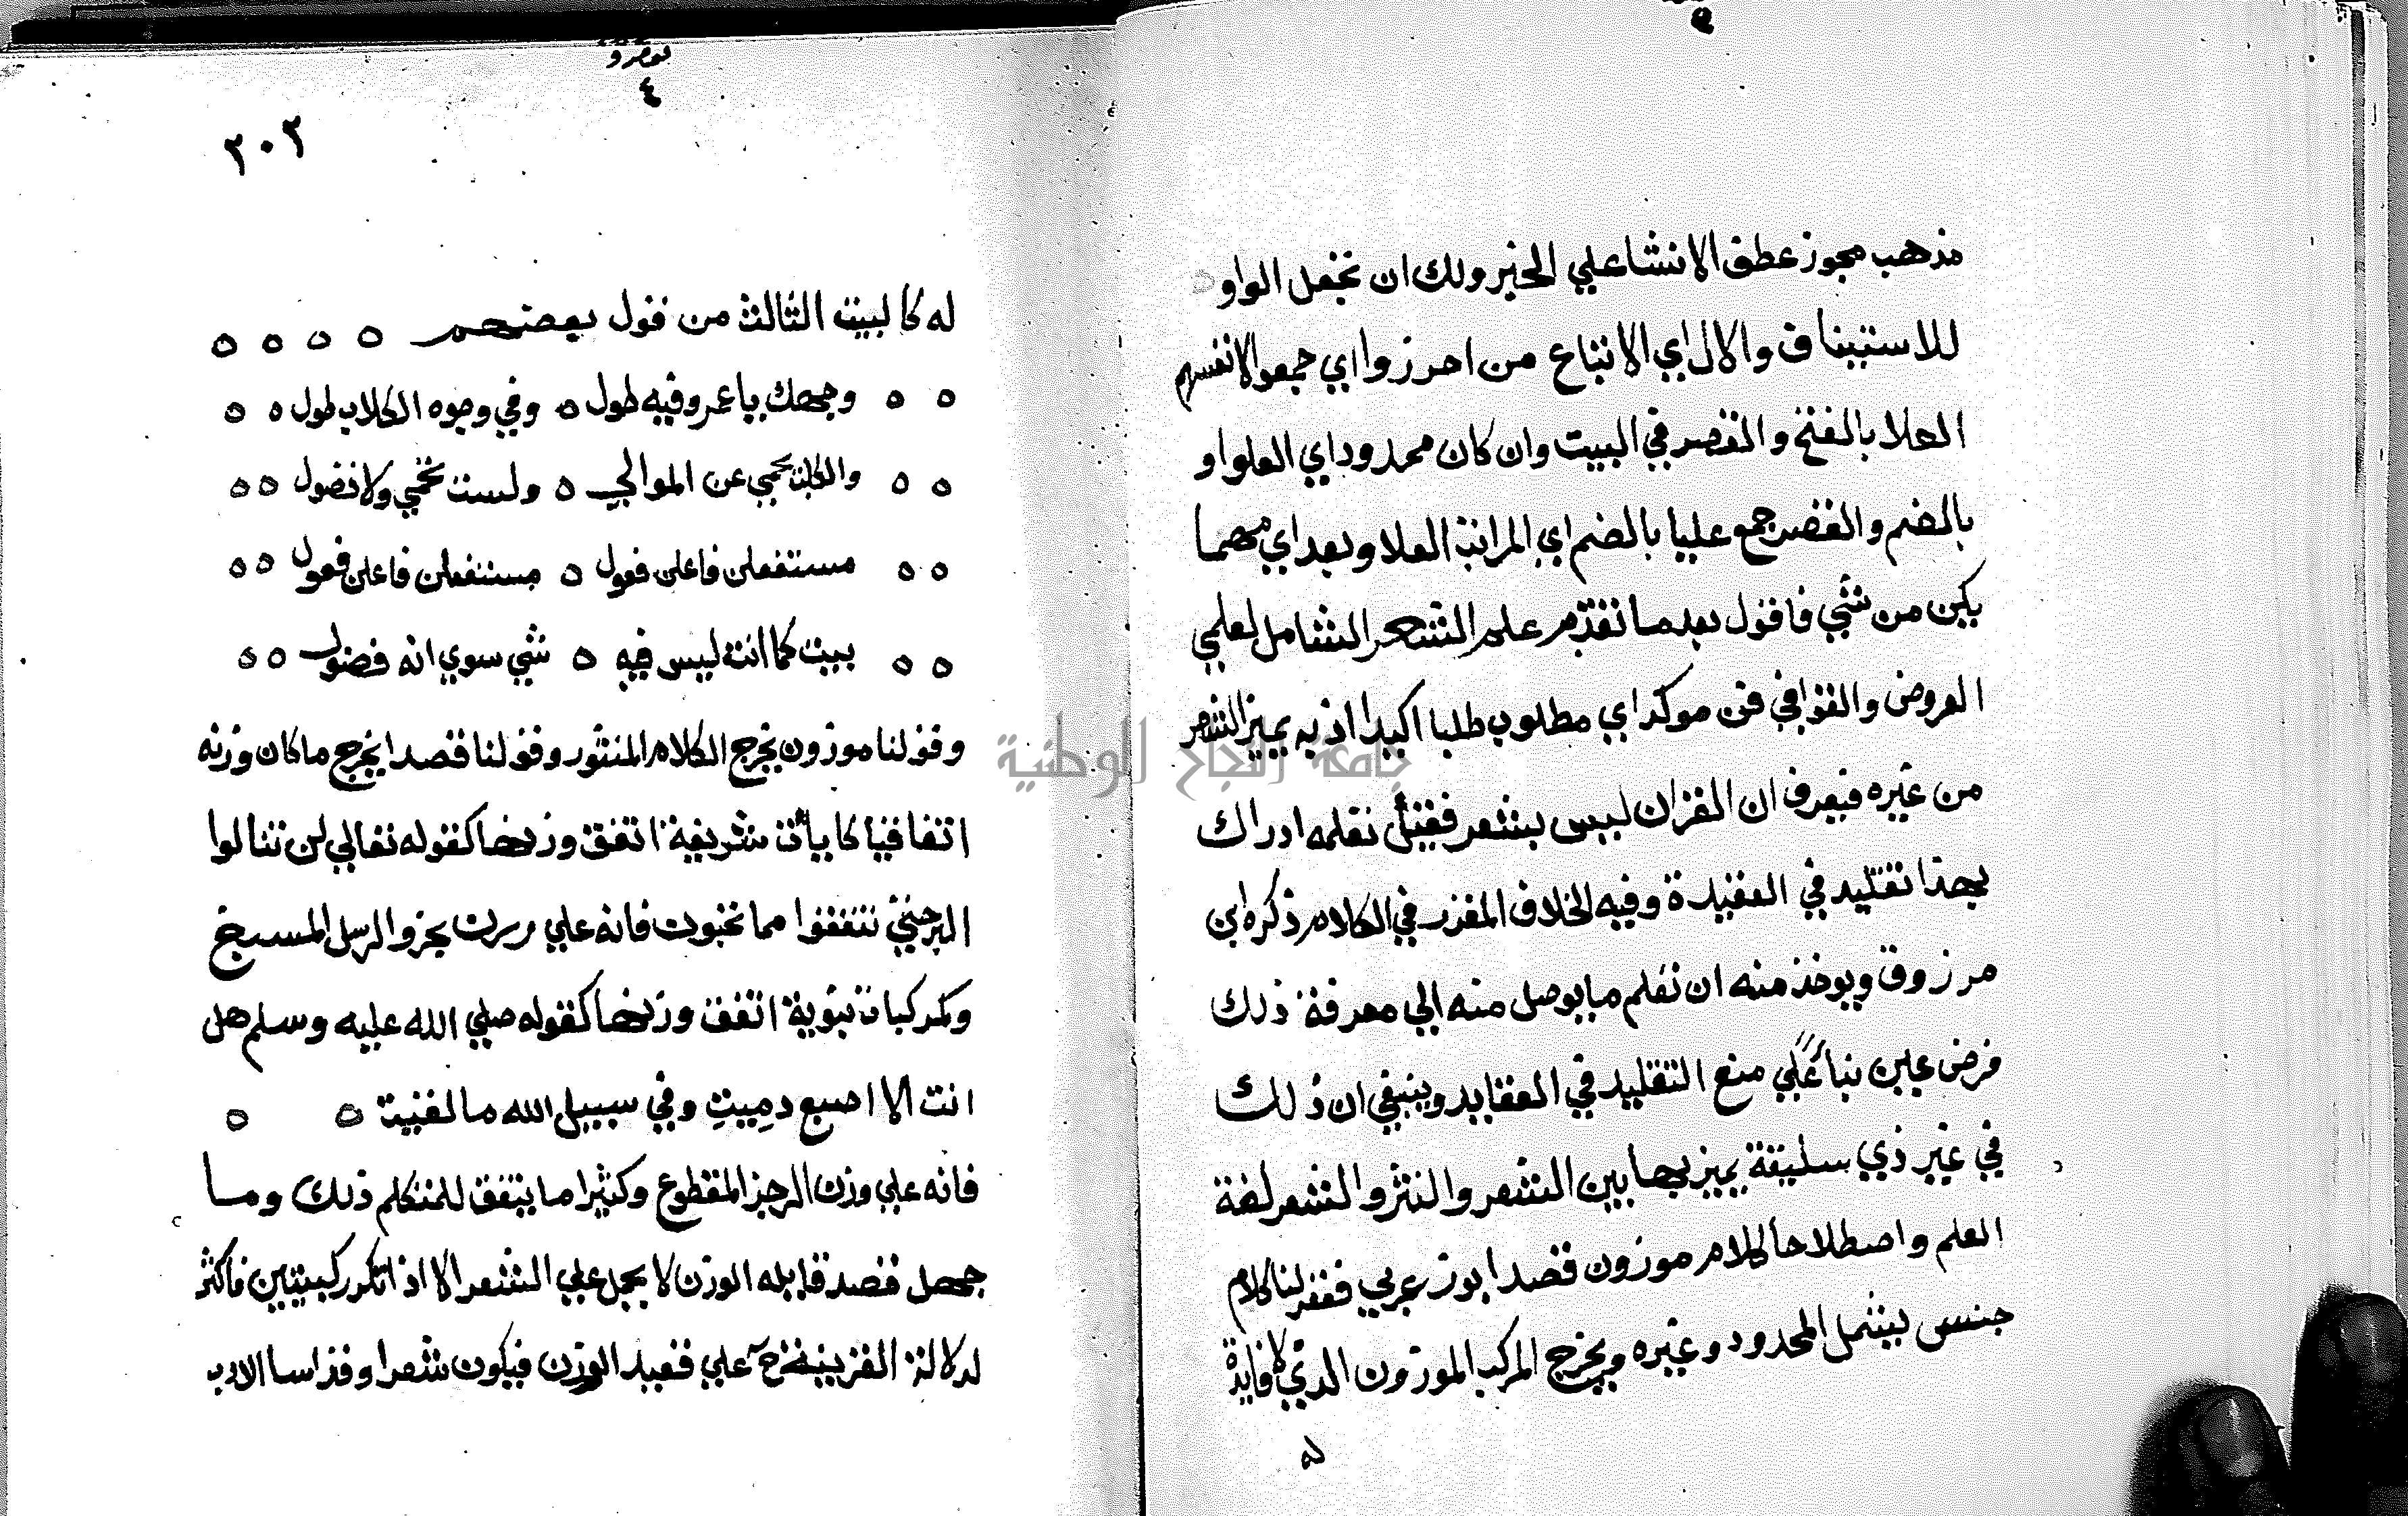 مذهب مجوز عطف الانشا علي الخبر ولك ان تجعل الواو
للاستيناف والال اي الاتباع من احرزوا اي جمعوا لانفسهم
العلا بالفتح والقصر في البيت وان كان ممدودا اي العلو او
بالضم والقصر جمع عليا بالضم اي المراتب العلا وبعد اي مهما
يكن من شي فاقول بعد ما تقدم علم الشعر الشامل لعلمي
العروض والقوافي فن موكد اي مطلوب طلبا اكيدا اذ به يميز الشعر
من غيره فيعرف ان القران ليس بشعر فقيل تعلمه ادراك
بهذا تقليد في العقيدة وفيه الخلاف المقرر في الكلام ذكره ابن
مرزوق ويوخذ منه ان تعلم ما يوصل منه الي معرفة ذلك
فرض عين بنا علي منع التقليد في العقايد وينبغي ان ذلك
في غير ذي سليقة يميز بها بين الشعر والنثر والشعر لغة
العلم واصطلاحا كلام موزون قصدا بوزن عربي فقولنا كلام
جنس يشمل المحدود وغيره ويخرج المركب الموزون الذي لا فايدة
له
٤
٢٠٢
له كالبيت الثالث من قول بعضهم ٥ ٥ ٥ ٥
٥ ٥ وجهك يا عمرو فيه طول ٥ وفي وجوه الكلاب طول ٥ ٥
٥ ٥ والكلب يحمي عن الموالي ٥ ولست تحمي ولا تصول ٥ ٥
٥ ٥ مستفعلن فاعلن فعول ٥ مستفعلن فاعلن فعول ٥ ٥
٥ ٥ بيت كما انت ليس فيه ٥ شي سوي انه فضول ٥ ٥
وقولنا موزون يخرج الكلام المنثور وقولنا قصدا يخرج ما كان وزنه
اتفاقيا كايات شريفة اتفق وزنها كقوله تعالي لن تنالوا
البر حتي تنفقوا مما تحبون فانه علي وزن مجزو الرمل المسبغ
وكمركبات نبوية اتفق وزنها كقوله صلي الله عليه وسلم هل
انت الا اصبع دميتِ وفي سبيل الله ما لقيت ٥ ٥
فانه علي وزن الرجز المقطوع وكثيرا ما يتفق للمتكلم ذلك وما
جهل قصد قايله الوزن لا يحمل علي الشعر الا اذا تكرر كبيتين فاكثر
لدلالة القرينة ح علي قصد الوزن فيكون شعرا وقد اسا الادب
جامعة النجاح الوطنية